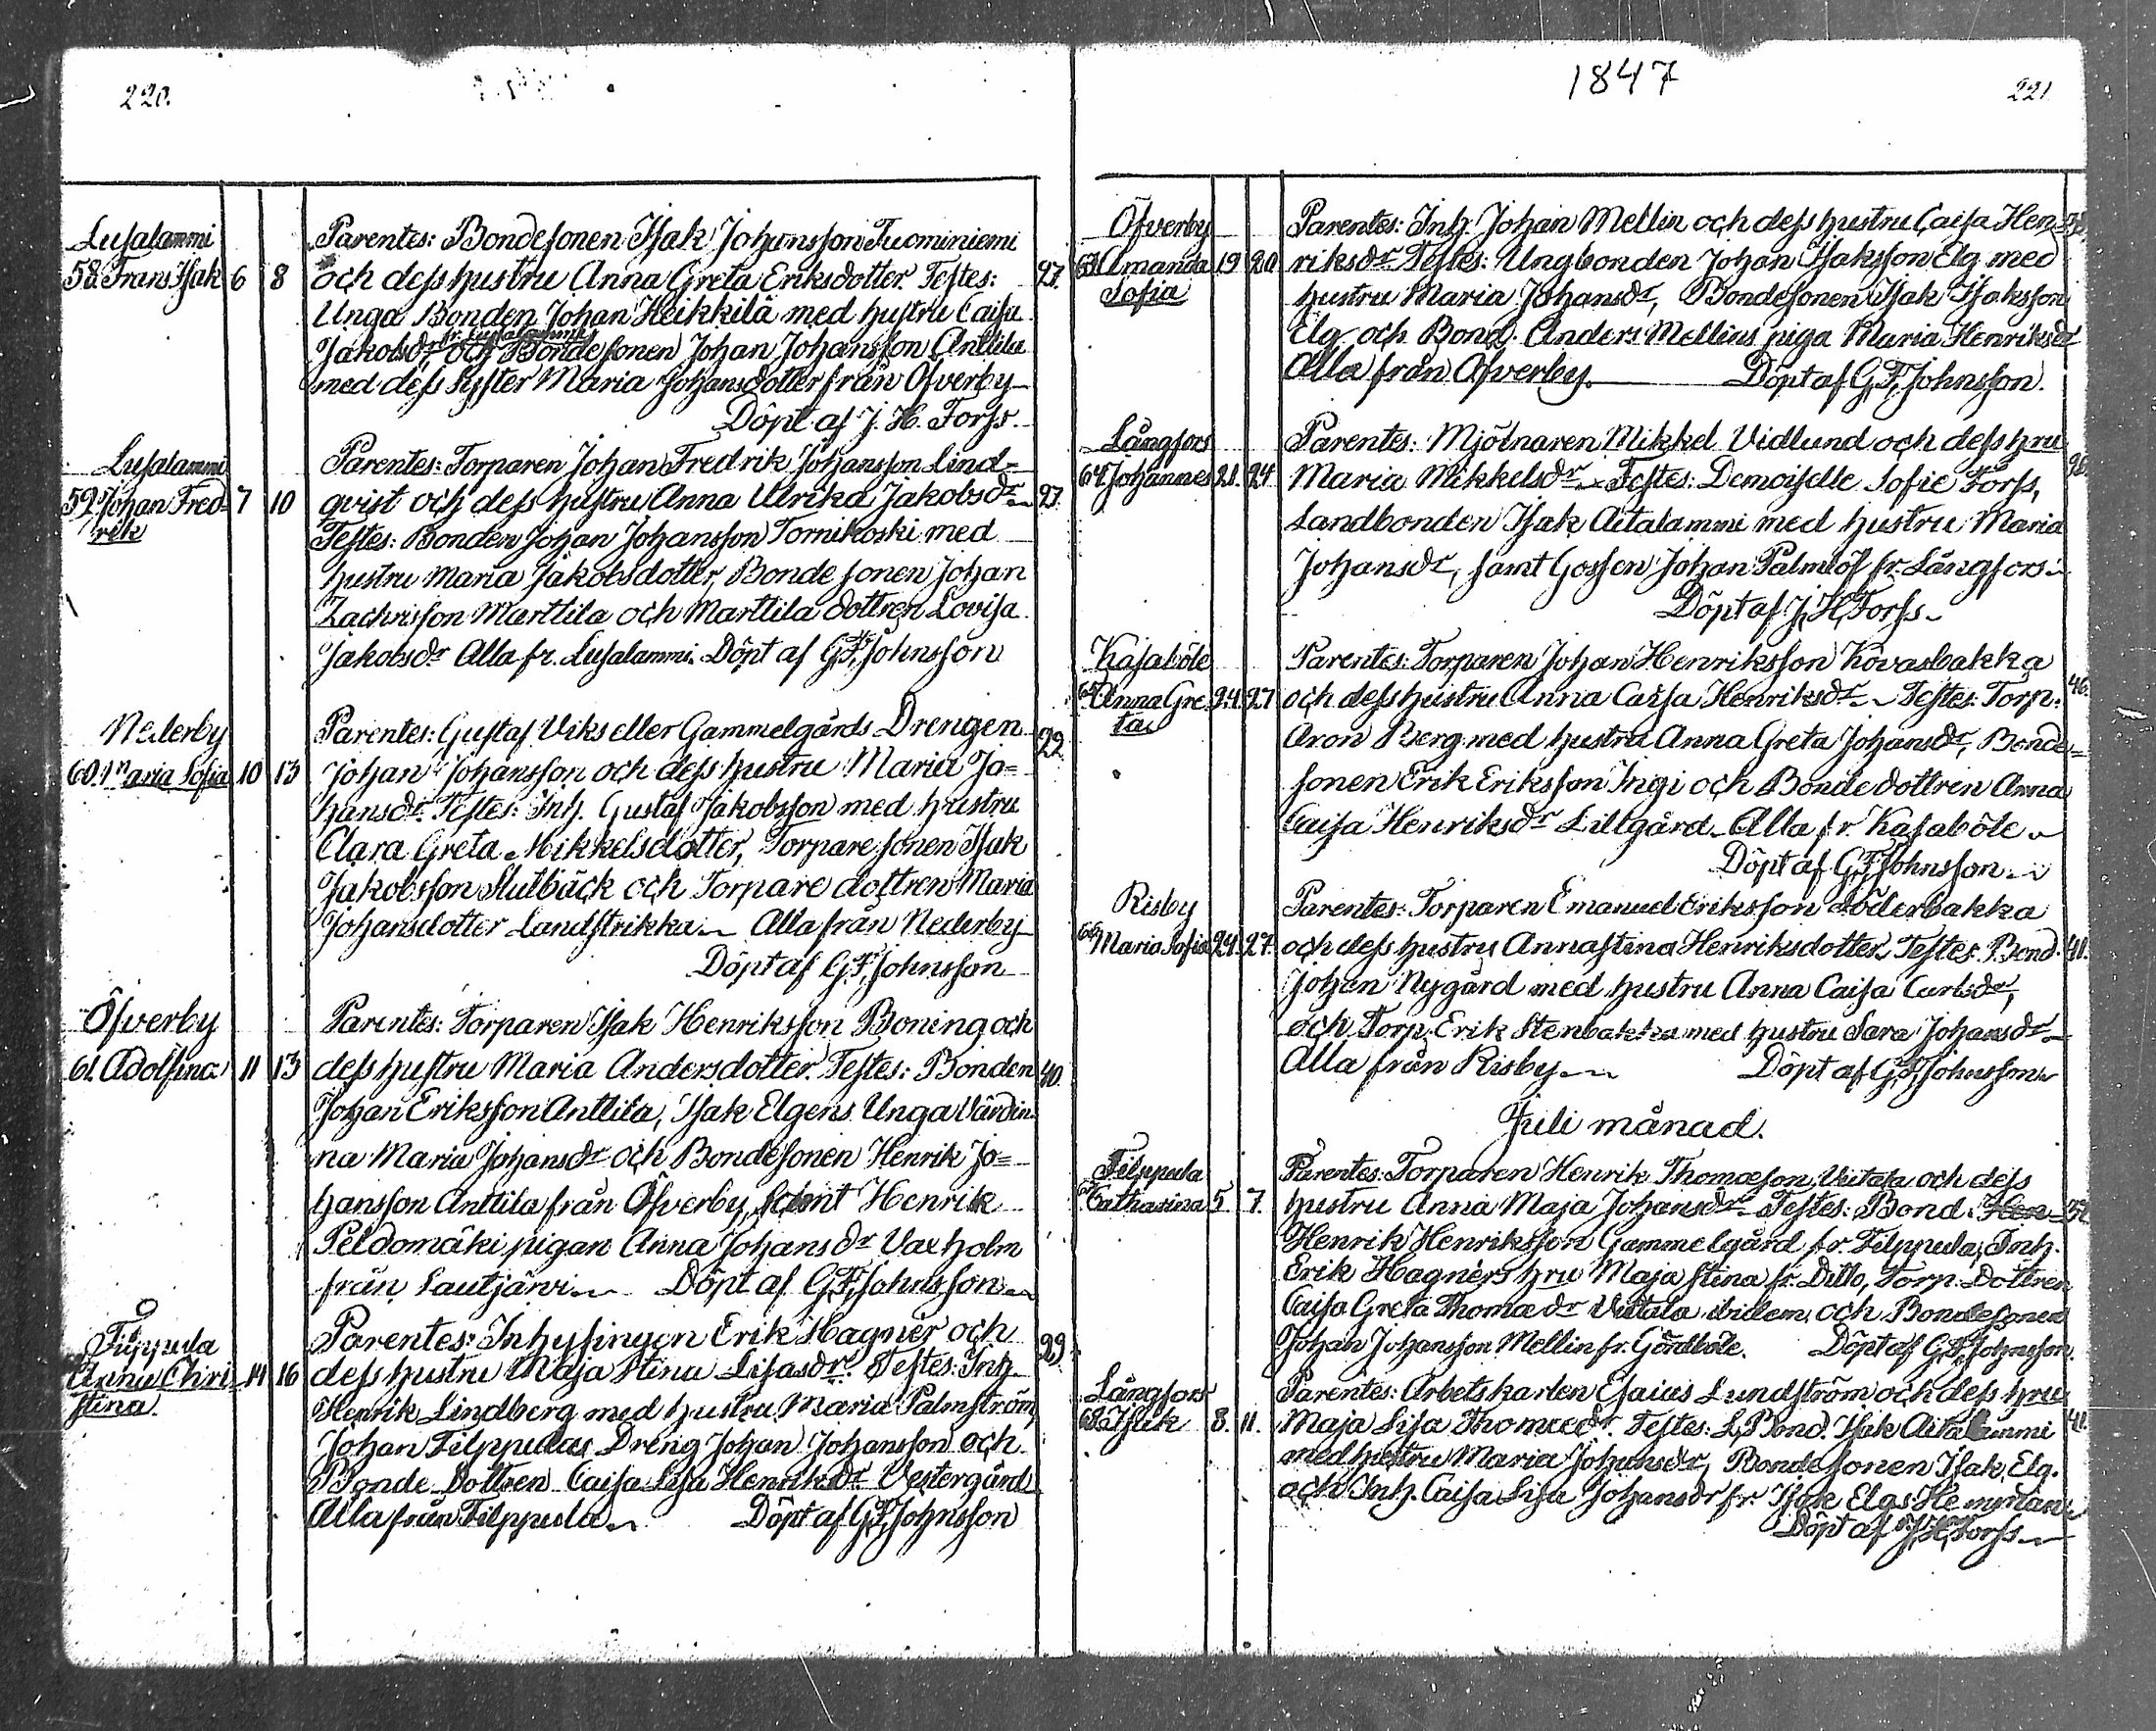 220.
Lusalammi
58. Frans Isak 6 8
Parentes: Bondesonen Isak Johansson Tuominiemi
och dess hustru Anna Greta Eriksdotter. Testes: 27.
Unga Bonden Johan Heikkilä med hustru Caisa
fr. Lusalammi
Jakobsdr, och Bondesonen Johan Johansson Anttila
med dess Syster Maria Johansdotter från Öfverby
Döpt af J. H. Forss.
Lusalammi
59. Johan Fred=
rik 7 10
Parentes: Torparen Johan Fredrik Johansson Lind=
qvist och dess hustru Anna Ulrika Jakobsdr 27.
Testes: Bonden Johan Johansson Tornikoski med
hustru Maria Jakobsdotter, Bondesonen Johan
Zachrisson Marttila och Marttila dottren Lovisa
Jakobsdr Alla fr. Lusalammi. Döpt af G.F. Johnsson
Nederby
60. Maria Sofia 10 13
Parentes: Gustaf Viks eller Gammelgårds Drengen 29.
Johan Johansson och dess hustru Maria Jo=
hansdr. Testes: Inh. Gustaf Jakobsson med hustru
Clara Greta Mikkelsdotter, Torparesonen Isak
Jakobsson Slutbäck och Torpare dottren Maria
Johansdotter Landstrikka Alla från Nederby
Döpt af G.F. Johnsson
Öfverby
61. Adolfina 11 13
Parentes: Torparen Isak Henriksson Boning och
dess hustru Maria Andersdotter. Testes: Bonden 40.
Johan Eriksson Anttila, Isak Elgens Unga Värdin=
na Maria Johansdr och Bondesonen Henrik Jo=
hansson Anttila från Öfverby, samt Henrik
Peldomäki pigan Anna Johansdr Vaxholm
från Lautjärvi Döpt af G.F. Johnsson
Filppula
Anna Chri=
stina 14 16
Parentes: Inhysingen Erik Hagnèr och 29.
dess hustru Maja Stina Lisasdr. Testes: Inh.
Henrik Lindberg med hustru Maria Palmström,
Johan Filppulas Dreng Johan Johansson och
Bonde Dottren Caisa Lisa Henriksdr Vestergård
Alla från Filppula Döpt af G.F. Johnsson
1847
221
Öfverby
63. Amanda
Sofia 19 20
Parentes: Inh. Johan Mellin och dess hustru Caisa Hen=
riksdr. Testes: Ungbonden Johan Isaksson Elg med
hustru Maria Johansdr, Bondesonen Isak Isaksson
Elg och Bond. Anders Mellins piga Maria Henriksdr
Alla från Öfverby. Döpt af G.F. Johnsson.
Långfors
64. Johannes 21. 24
Parentes: Mjölnaren Mikkel Vidlund och dess hru
Maria Mikkelsdr Testes: Demoiselle Sofie Forss,
Landbonden Isak Aitalammi med hustru Maria
Johansdr, samt Gossen Johan Palmlöf fr. Långfors
Döpt af J. H. Forss
Kasaböle
65. Anna Gre
ta 24. 27
Parentes: Torparen Johan Henriksson Kovasbakka
och dess hustru Anna Caisa Henriksdr Testes: Torp. 46.
Aron Berg med hustru Anna Greta Johansdr, Bonde=
sonen Erik Eriksson Ingi och Bonde dottren Anna
Caisa Henriksdr Lillgård Alla fr. Kasaböle
Döpt af G.F. Johnsson
Risby
66. Maria Sofia 24. 27.
Parentes: Torparen Emanuel Eriksson Söderbakka
och dess hustru Annastina Henriksdotter Testes. Bond. 41.
Johan Nygård med hustru Anna Caisa Carlsdr,
och Torp. Erik Stenbakka med hustru Sara Johansdr
Alla från Risby Döpt af G.F. Johnsson
Juli månad.
Filppula
Catharina 5 7
Parentes: Torparen Henrik Thomæson Viitala och dess
hustru Anna Maja Johansdr Testes: Bond. Hen=
Henrik Henriksson Gammelgård fr. Filppula, Inh.
Erik Hagnèrs hru Maja Stina fr. Ditto, Torp. Dottren
Caisa Greta Thomædr Viitala ibidem, och Bondesonen
Johan Johansson Mellin fr. Gårdböle. Döpt af G.F. Johnsson.
Långfors
68. Isak 8. 11.
Parentes: Arbetskarlen Esaias Lundström och dess hru
Maja Lisa Thomædr. Testes: L. Bond. Isak Aitalammi 41.
med hustru Maria Johansdr, Bondesonen Isak Elg.
och Inh. Caisa Lisa Johansdr fr. Isak Elgs Hemman
Döpt af J. H. Forss